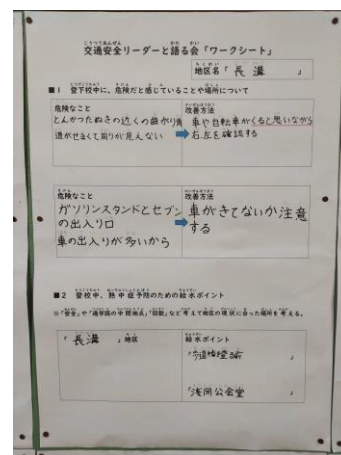 こうつうあんぜん かた かい
交通安全リーダーと語る会「ワークシート」
地区名「 長溝 」
■1 登下校中に、危険だと感じていることや場所について
危険なこと
とんかつたぬきの近くの曲がり角
道がせまくて周りが見えない
改善方法
車や自転車がくると思いながら
右左を確認する
危険なこと
ガソリンスタンドとセブン
の出入り口
車の出入りが多いから
改善方法
車がきてないか注意
する
■2 登校中、熱中症予防のための給水ポイント
※「安全」や「通学路の中間地点」「回数」など考えて地区の現状に合った場所を考える。
「 長溝 」地区
給水ポイント
「 」
「浅岡公会堂 」